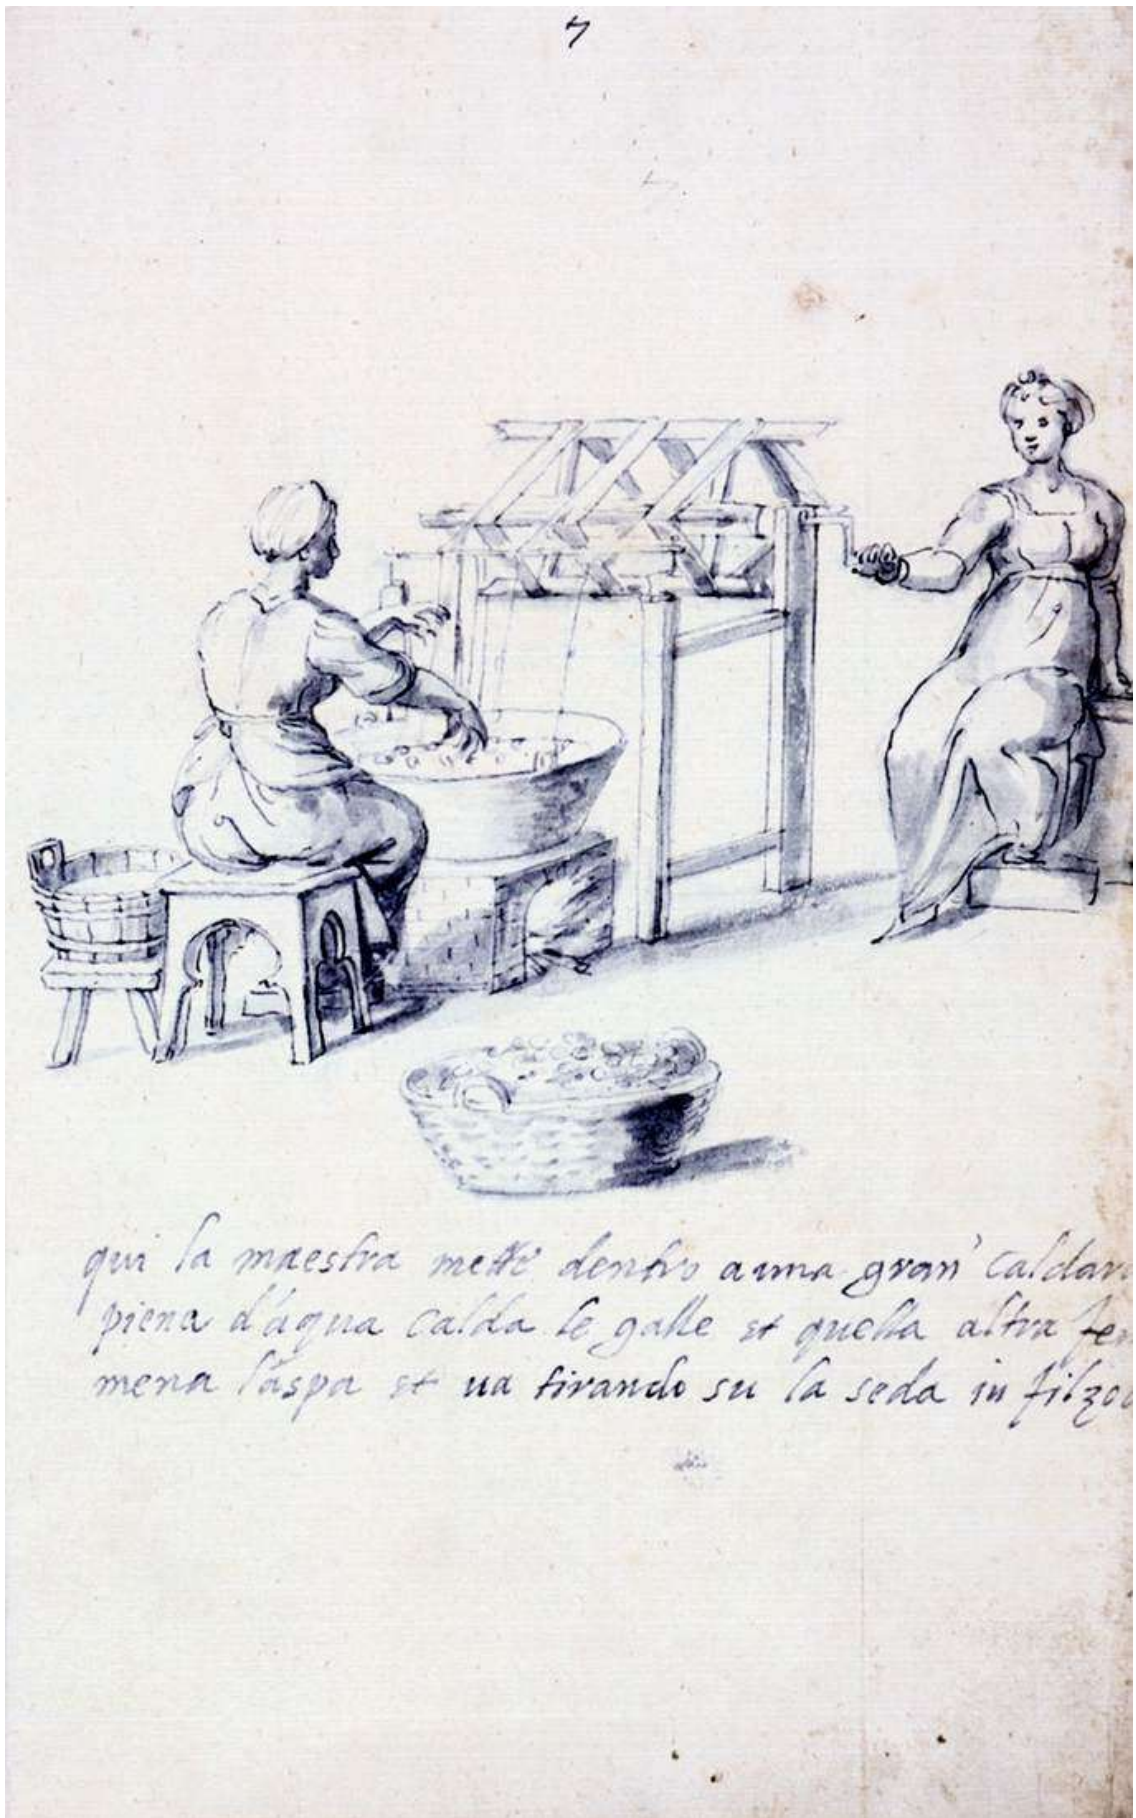 7
qui la maestra mette dentro a una gran' caldar
piena d'aqua calda le galle et quella altra fe
mena l'aspa et ua tirando su la seda in filzo